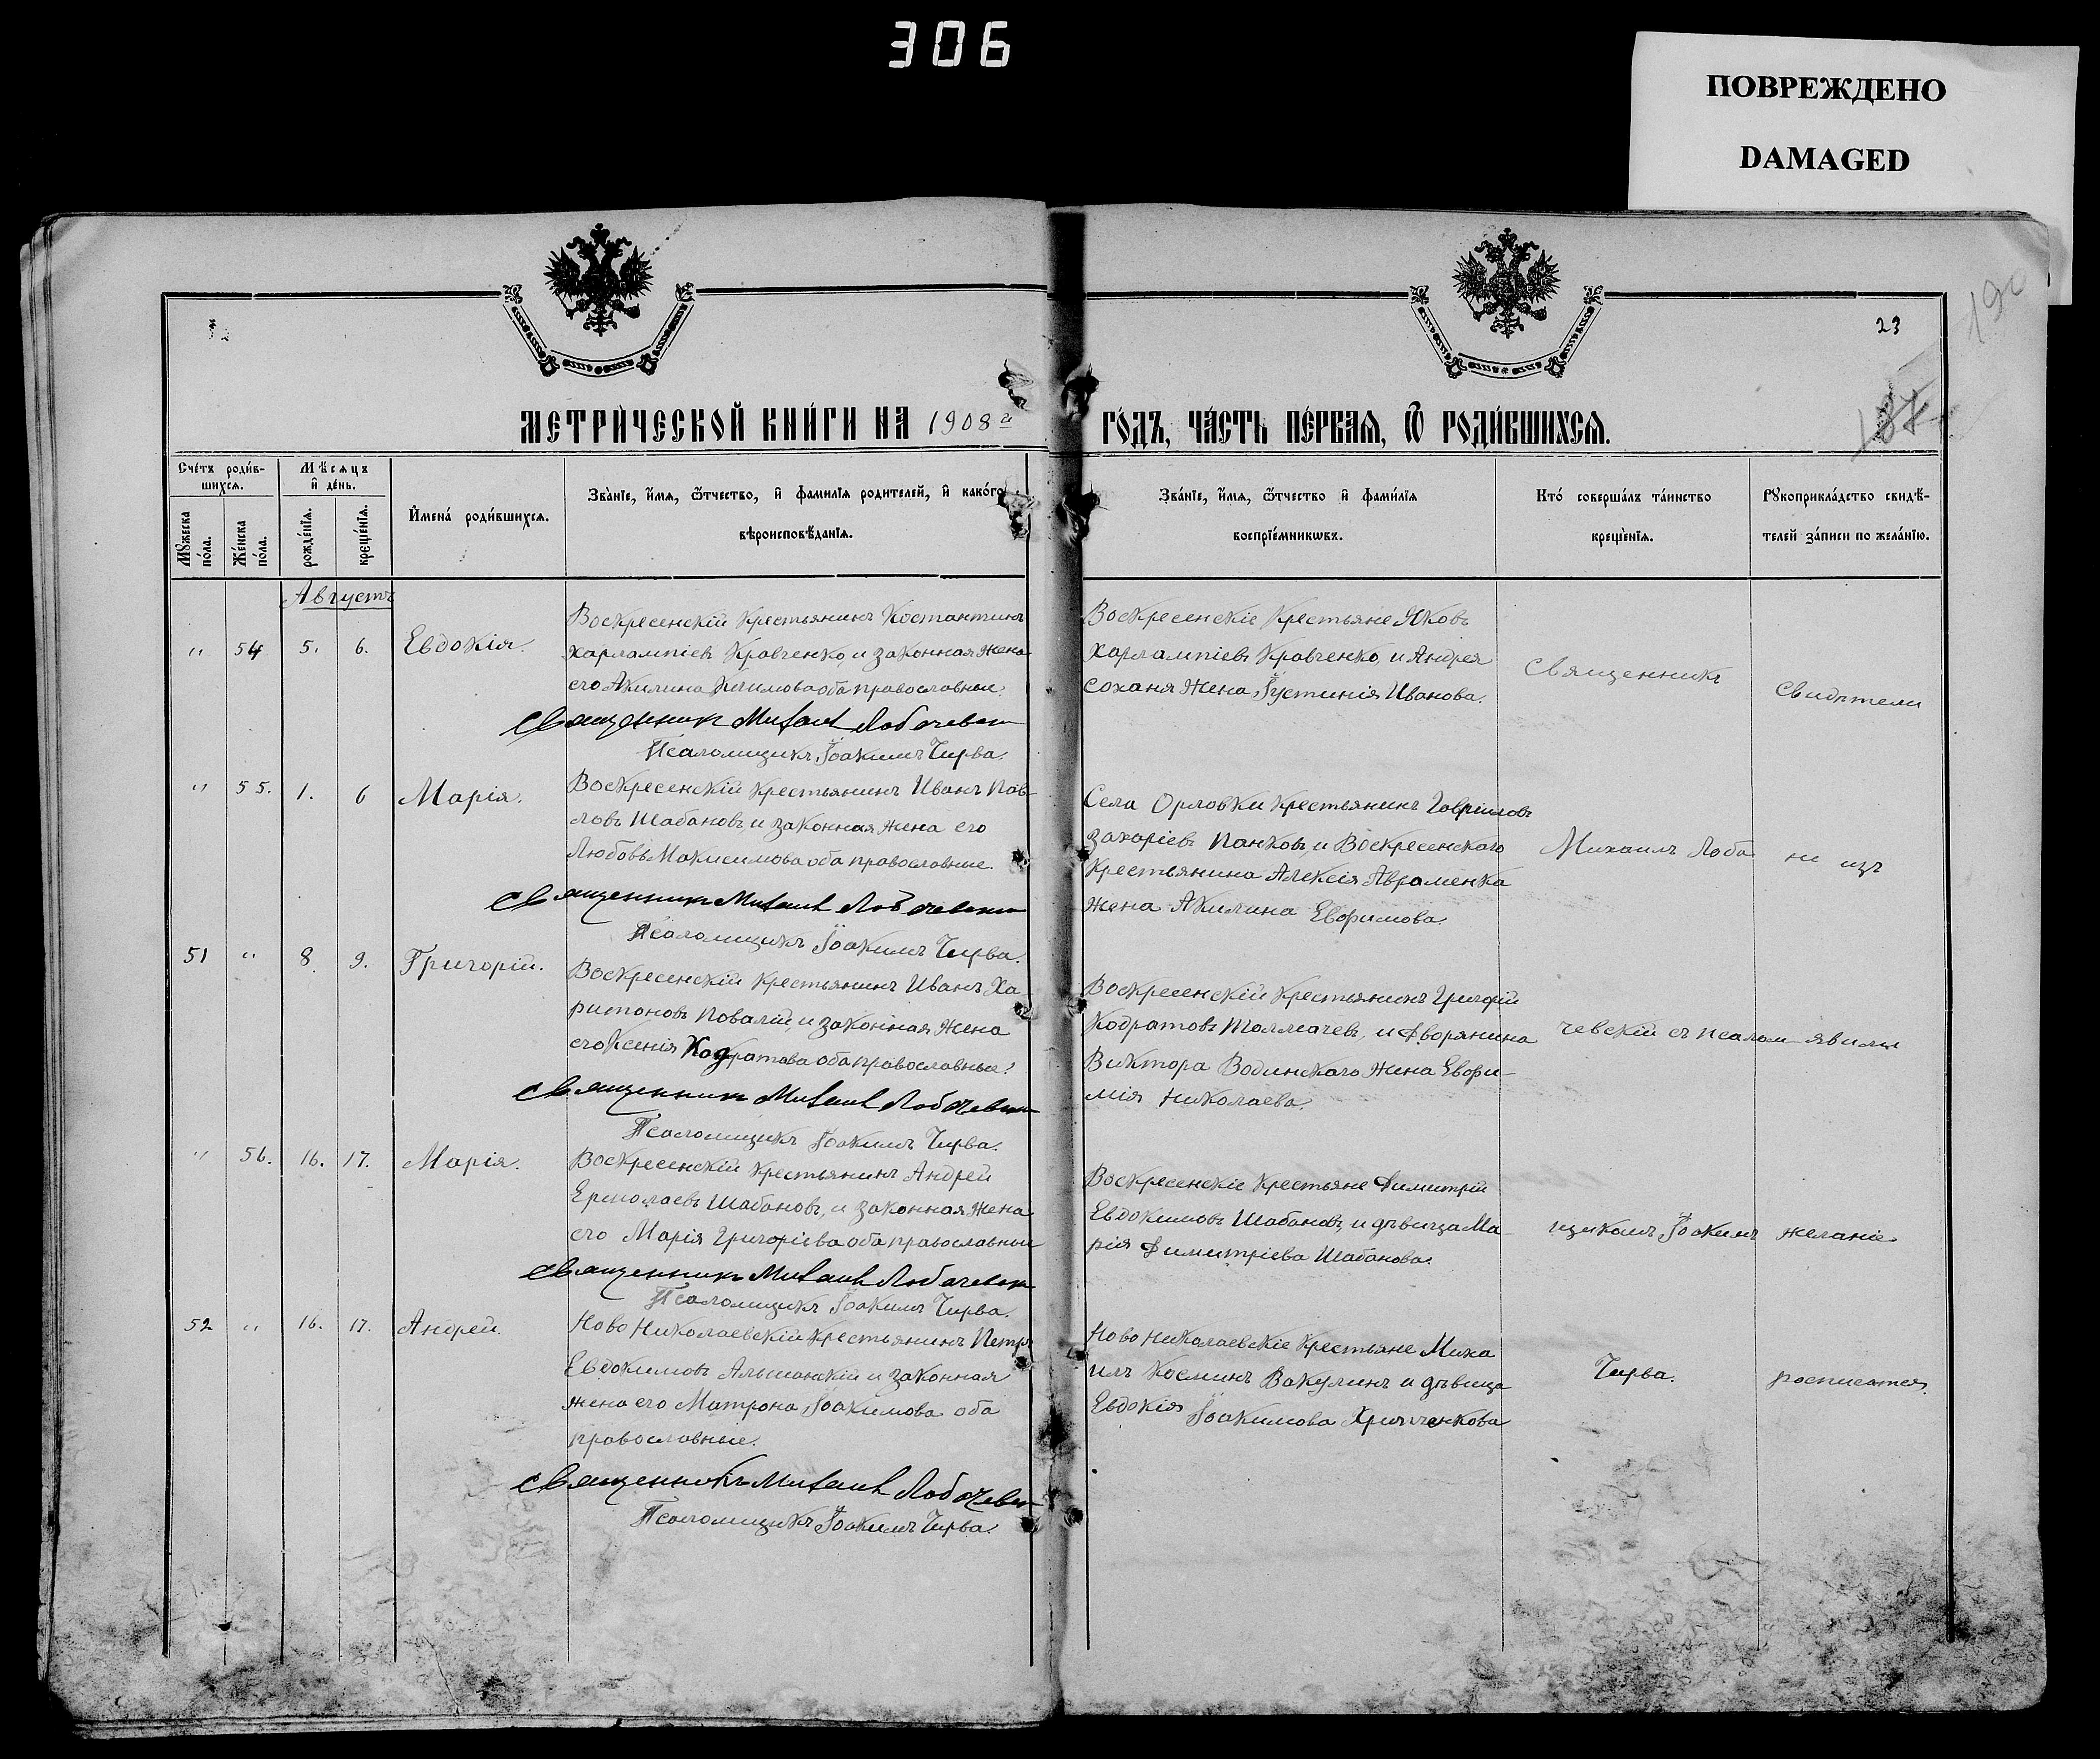 306
ПОВРЕЖДЕНО
DAMAGED
190
23
187
МЕТРИ́ЧЕСКОЙ КНИ́ГИ НА 1908й
ГО́ДЪ, ЧА́СТЬ ПЕ́РВАѦ, Ѿ РОДИ́ВШИХСѦ.
Сче́тъ роди́в-
шихсѧ.
Мꙋжеска по́ла.
Же́нска по́ла.
Мѣ́сѧцъ
и҆ де́нь.
рожде́нїѧ.
креще́нїѧ.
И҆мена́ роди́вшихсѧ.
Зва́нїе, и҆́мѧ, ѻ҆́тчество, и҆ фами́лїѧ роди́телей, и҆ како́гѡ
вѣроисповѣ́данїѧ.
Зва́нїе, и҆́мѧ, ѻ҆́тчество и҆ фами́лїѧ
воспрїе́мникѡвъ.
Кто́ соверша́лъ та́инство
креще́нїѧ.
Рꙋкоприкла́дство свидѣ́-
телей за́писи по жела́нїю.
Августъ
" 54 5. 6. Евдокія.
Воскресенскій крестьянинъ Костантинъ
Харлампіевъ Кравченко, и законная жена
его Акилина оба православные.
Священник Михаил Лобачевск
Псаломщикъ Іоакимъ Чирва.
Воскресенскіе крестьяне Яковъ
Харлампіевъ Кравченко, и Андрея
Соханя жена Іустинія Иванова.
" 55. 1. 6 Марія.
Воскресенскій крестьянинъ Иванъ Пав-
ловъ Шабановъ и законная жена его
Любовь Максимова оба православные.
Священник Михаил Лобачевски
Псаломщикъ Іоакимъ Чирва.
Села Орловки крестьянинъ Гавріиловъ
Захаріевъ Панковъ, и Воскресенскаго
крестьянина Алексія Авраменка
жена Акилина Евфимова.
51 " 8 9. Григорій.
Воскресенскій крестьянинъ Иванъ Ха
ритоновъ Повалій, и законная жена
его Ксенія Кодратова оба православные.
Священник Михаил Лобачевск
Псаломщикъ Іоакимъ Чирва.
Воскресенскій крестьянинъ Григорій
Кодратовъ Толмачевъ, и дворянина
Виктора Водинскаго жена Евфи-
мія Николаева.
" 56. 16. 17. Марія.
Воскресенскій крестьянинъ Андрей
Ермолаевъ Шабановъ, и законная жена
его Марія Григоріева оба православные
Священник Михаил Лобачевск
Псаломщикъ Іоакимъ Чирва.
Воскресенскіе крестьяне Димитрій
Евдокимовъ Шабановъ, и дѣвица Ма-
рія Димитріева Шабанова.
52 " 16. 17. Андрей.
Ново Николаевскій крестьянинъ Петръ
Евдокимовъ Альшанскій и законная
жена его Матрона Іоакимова оба
православные.
Священникъ Михаил Лобачевск
Псаломщикъ Іоакимъ Чирва.
Ново Николаевскіе крестьяне Миха
илъ Косминъ Вакулинъ и дѣвица
Евдокія Іоакимова Хрипченкова
Священникъ
Михаилъ Лоба
чевскій съ псалом-
щикомъ Іоакимъ
Чирва.
Свидѣтели
не изъ
явили
желаніе
росписатся.